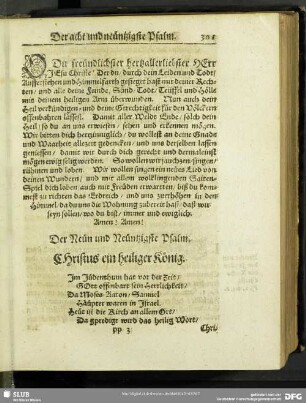 Der acht und neüntzigste Psalm. 301
O Du freündlichster hertzallerliebster HErr
JEsu Christe! Der du durch dein Leiden und Todt/
Aufferstehen und Himmelfahrt gesieget hast mit deiner Rech-
ten/ und alle deine Feinde/ Sünd/ Todt/ Teüffel und Hölle
mit deinem heiligen Arm überwunden. Nun auch dein
Heil verkündigen und deine Gerechtigkeit für den Völckern
offenbahren lässest. Damit aller Welt Ende/ solch dein
Heil so du an uns erwiesen/ sehen und erkennen mögen.
Wir bitten dich hertzinniglich/ du wollest an deine Gnade
und Waarheit allezeit gedencken/ und uns derselben lassen
geniessen/ damit wir durch dich gerecht und
mögen ewig selig werden. So wollen wir jauchzen/ singen/
rühmen und loben. Wir wollen singen ein neües Lied von
deinen Wundern/ und mit allem wolklingenden Saiten-
Spiel dich loben auch mit Freüden erwarten/ biß du kom-
mest zu richten das Erdreich/ und uns zurheimen in den
Himmel da du uns die Wohnung zubereit hast/ daß wir
seyn sollen/ wo du bist/ immer und ewiglich.
Amen! Amen!
Der Neün und Neüntzigste Psalm.
CHristus ein heiliger König.
Im Jüdenthum hat vor der Zeit/
GOtt offenbart sein Herrlichkeit/
Da Moses Aaron/ Samuel
Häupter waren in Israel.
Heüt ist die Kirch an allem Ort/
Da gpredigt wird das heilig Wort/
pp 3 Chri-
SLUB
Wir führen Wissen.
DFG